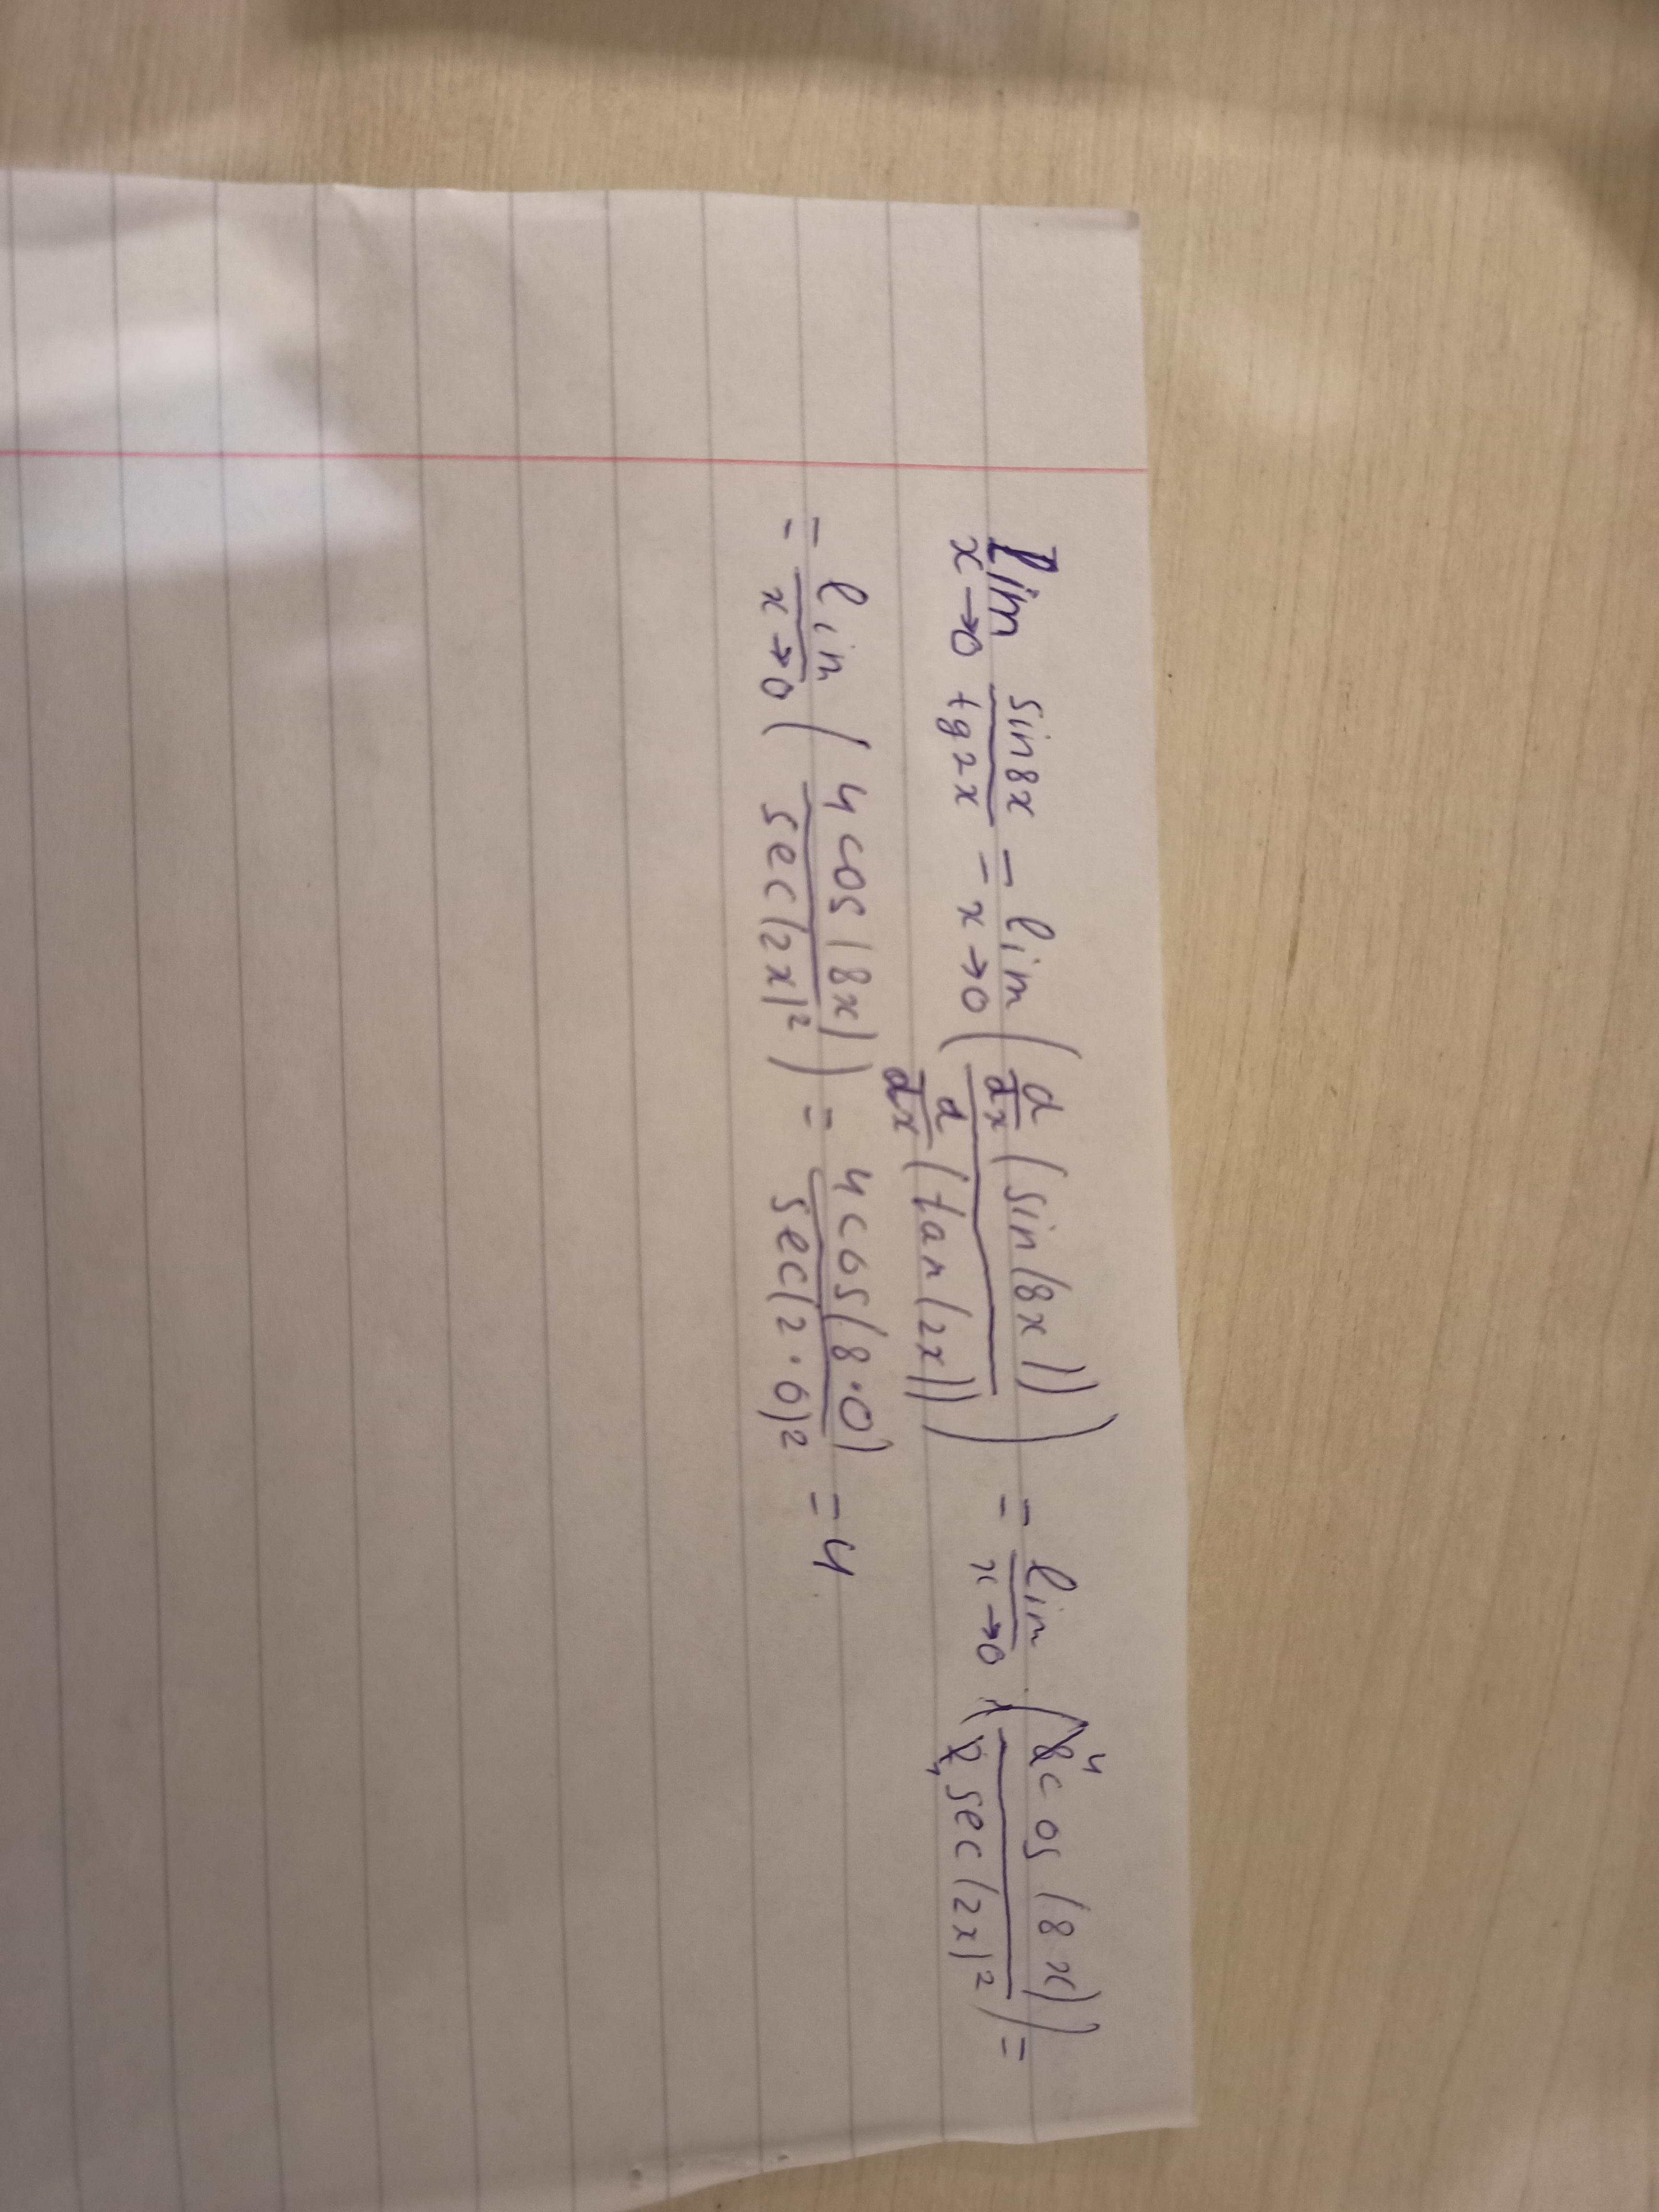 lim x→0 sin8x / tg2x = lim x→0 ( d/dx (sin(8x)) / d/dx (tan(2x)) ) = lim x→0 ( 8 4 cos(8x) / 2 1 sec(2x)² ) =
= lim x→0 ( 4cos(8x) / sec(2x)² ) = 4cos(8·0) / sec(2·0)² = 4